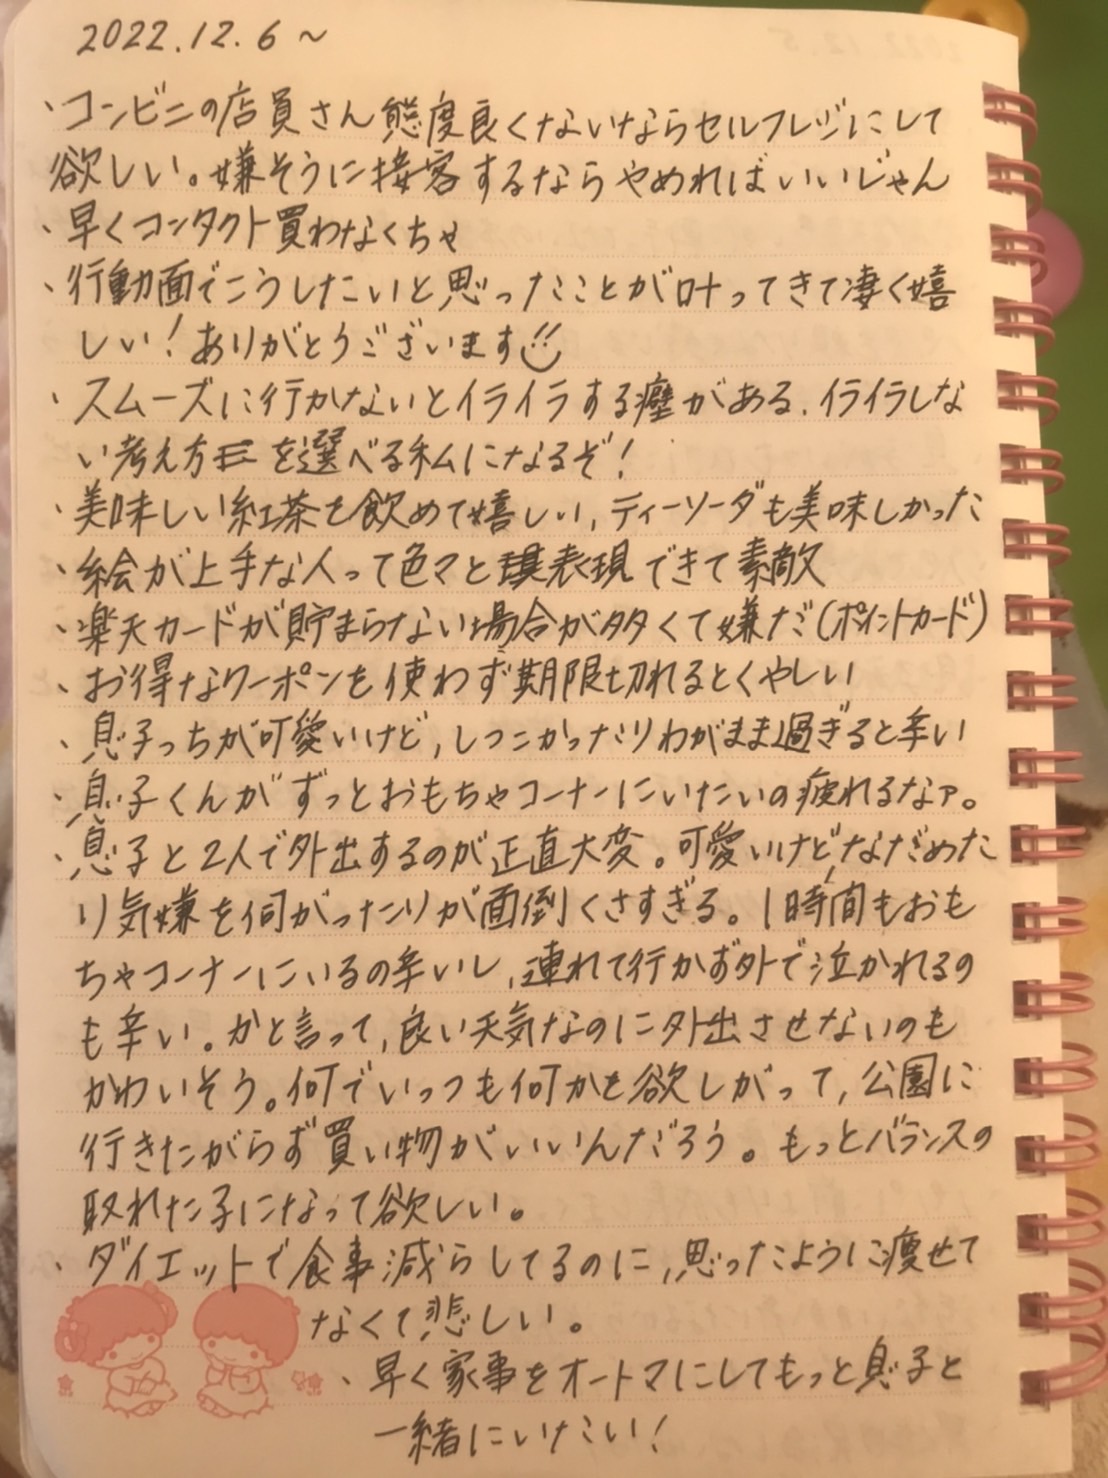 2022.12.6～
、コンビニの店員さん態度良くないならセルフレジにして
欲しい。嫌そうに接客するならやめればいいじゃん
、早くコンタクト買わなくちゃ
、行動面でこうしたいと思ったことが叶ってきて凄く嬉
しい！ありがとうございます
、スムーズに行かないとイライラする癖がある、イライラしな
い考え方を選べる私になるぞ！
、美味しい紅茶を飲めて嬉しい、ティーソーダも美味しかった
、絵が上手な人って色々と表現できて素敵
、楽天カードが貯まらない場合が多くて嫌だ(ポイントカード)
、お得なクーポンを使わず期限切れるとくやしい
、息子っちが可愛いけど、しつこかったりわがまま過ぎると辛い
、息子くんがずっとおもちゃコーナーにいたいの疲れるなァ。
、息子と2人で外出するのが正直大変。可愛いけど、なだめた
り気嫌を伺がったりが面倒くさすぎる。1時間もおも
ちゃコーナーにいるの辛いし、連れて行かず外で泣かれるの
も辛い。かと言って、良い天気なのに外出させないのも
かわいそう。何でいっつも何かを欲しがって、公園に
行きたがらず買い物がいいんだろう。もっとバランスの
取れた子になって欲しい。
、ダイエットで食事減らしてるのに、思ったように痩せて
なくて悲しい。
、早く家事をオートマにしてもっと息子と
一緒にいたい！